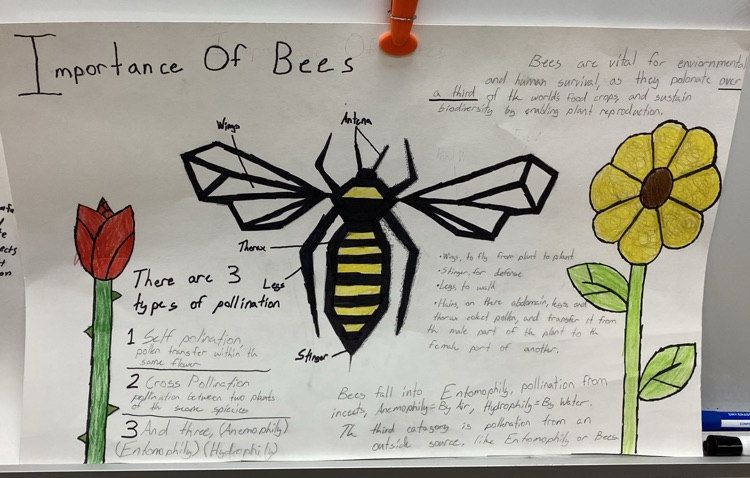 Importance Of Bees
Bees are vital for enviornmental
and human survival, as they polonate over
a third of the world's food crops, and sustain
biodiversity by enabling plant reproduction.
Wings
Antena
Thorax
Legs
Stinger
There are 3
types of pollination
1 Self polination,
pollen transfer within the
same flower
2 Cross Pollination
pollination between two plants
of the same species
3 And three, (Anemophily)
(Entomophily) (Hydrophily)
•Wings, to fly from plant to plant
•Stinger, for defense
•Legs to walk
•Hairs, on there abdomin, legs and
thorax colect pollen, and transfer it from
the male part of the plant to the
female part of another.
Bees fall into Entomophily, pollination from
incets, Anemophily=By Air, Hydrophily=By Water.
The third catagory is polleration from an
outside source, like Entomophily or Bees